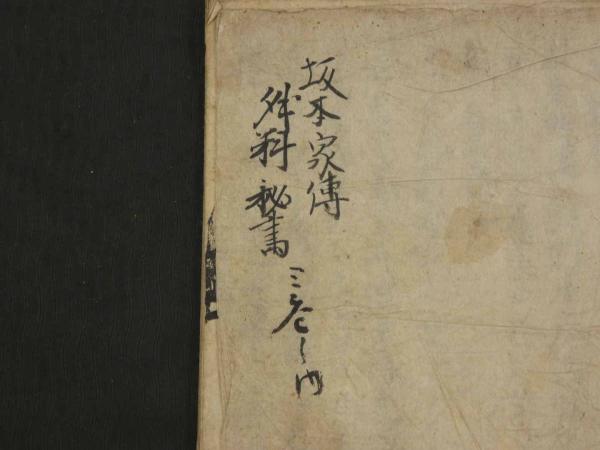 坂本家傳
外科秘書
三巻之内